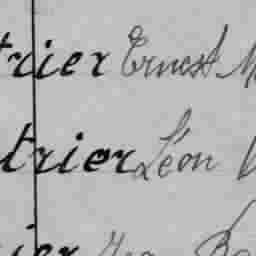 trier Ernest M
trier Léon V
ier